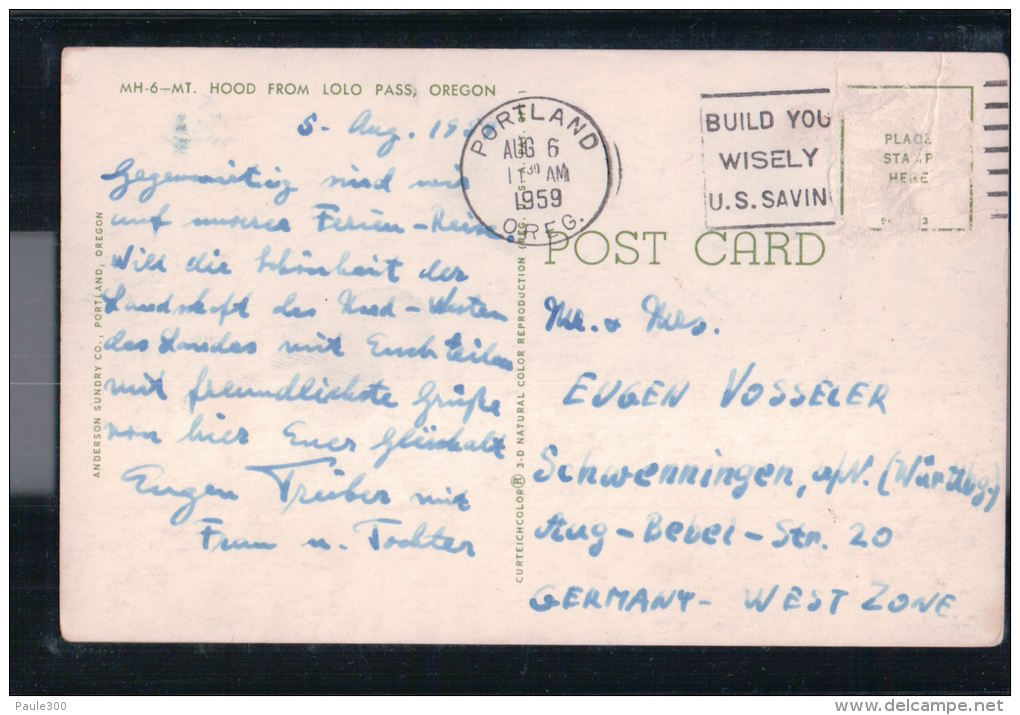 MH-6—MT. HOOD FROM LOLO PASS, OREGON
5. Aug. 195
Gegenwärtig sind wir
auf unserer Ferien-Reise.
Will die Schönheit der
Landschaft des Nord-Westen
des Landes mit Euch teilen
mit freundlichste Grüße
von hier Euer
Eugen Trüber mit
Frau u. Tochter
ANDERSON SUNDRY CO., PORTLAND, OREGON
CURTEICHCOLOR® 3-D NATURAL COLOR REPRODUCTION (REG. U.S.
PORTLAND
AUG 6
11 30 AM
1959
OREG.
BUILD YOU
WISELY
U.S. SAVIN
PLACE
STAMP
HERE
POST CARD
Mr. & Mrs.
EUGEN VOSSELER
Schwenningen, a/N. (Württbg.)
Aug-Bebel-Str. 20
GERMANY- WEST ZONE
Paule300
delcampe.net